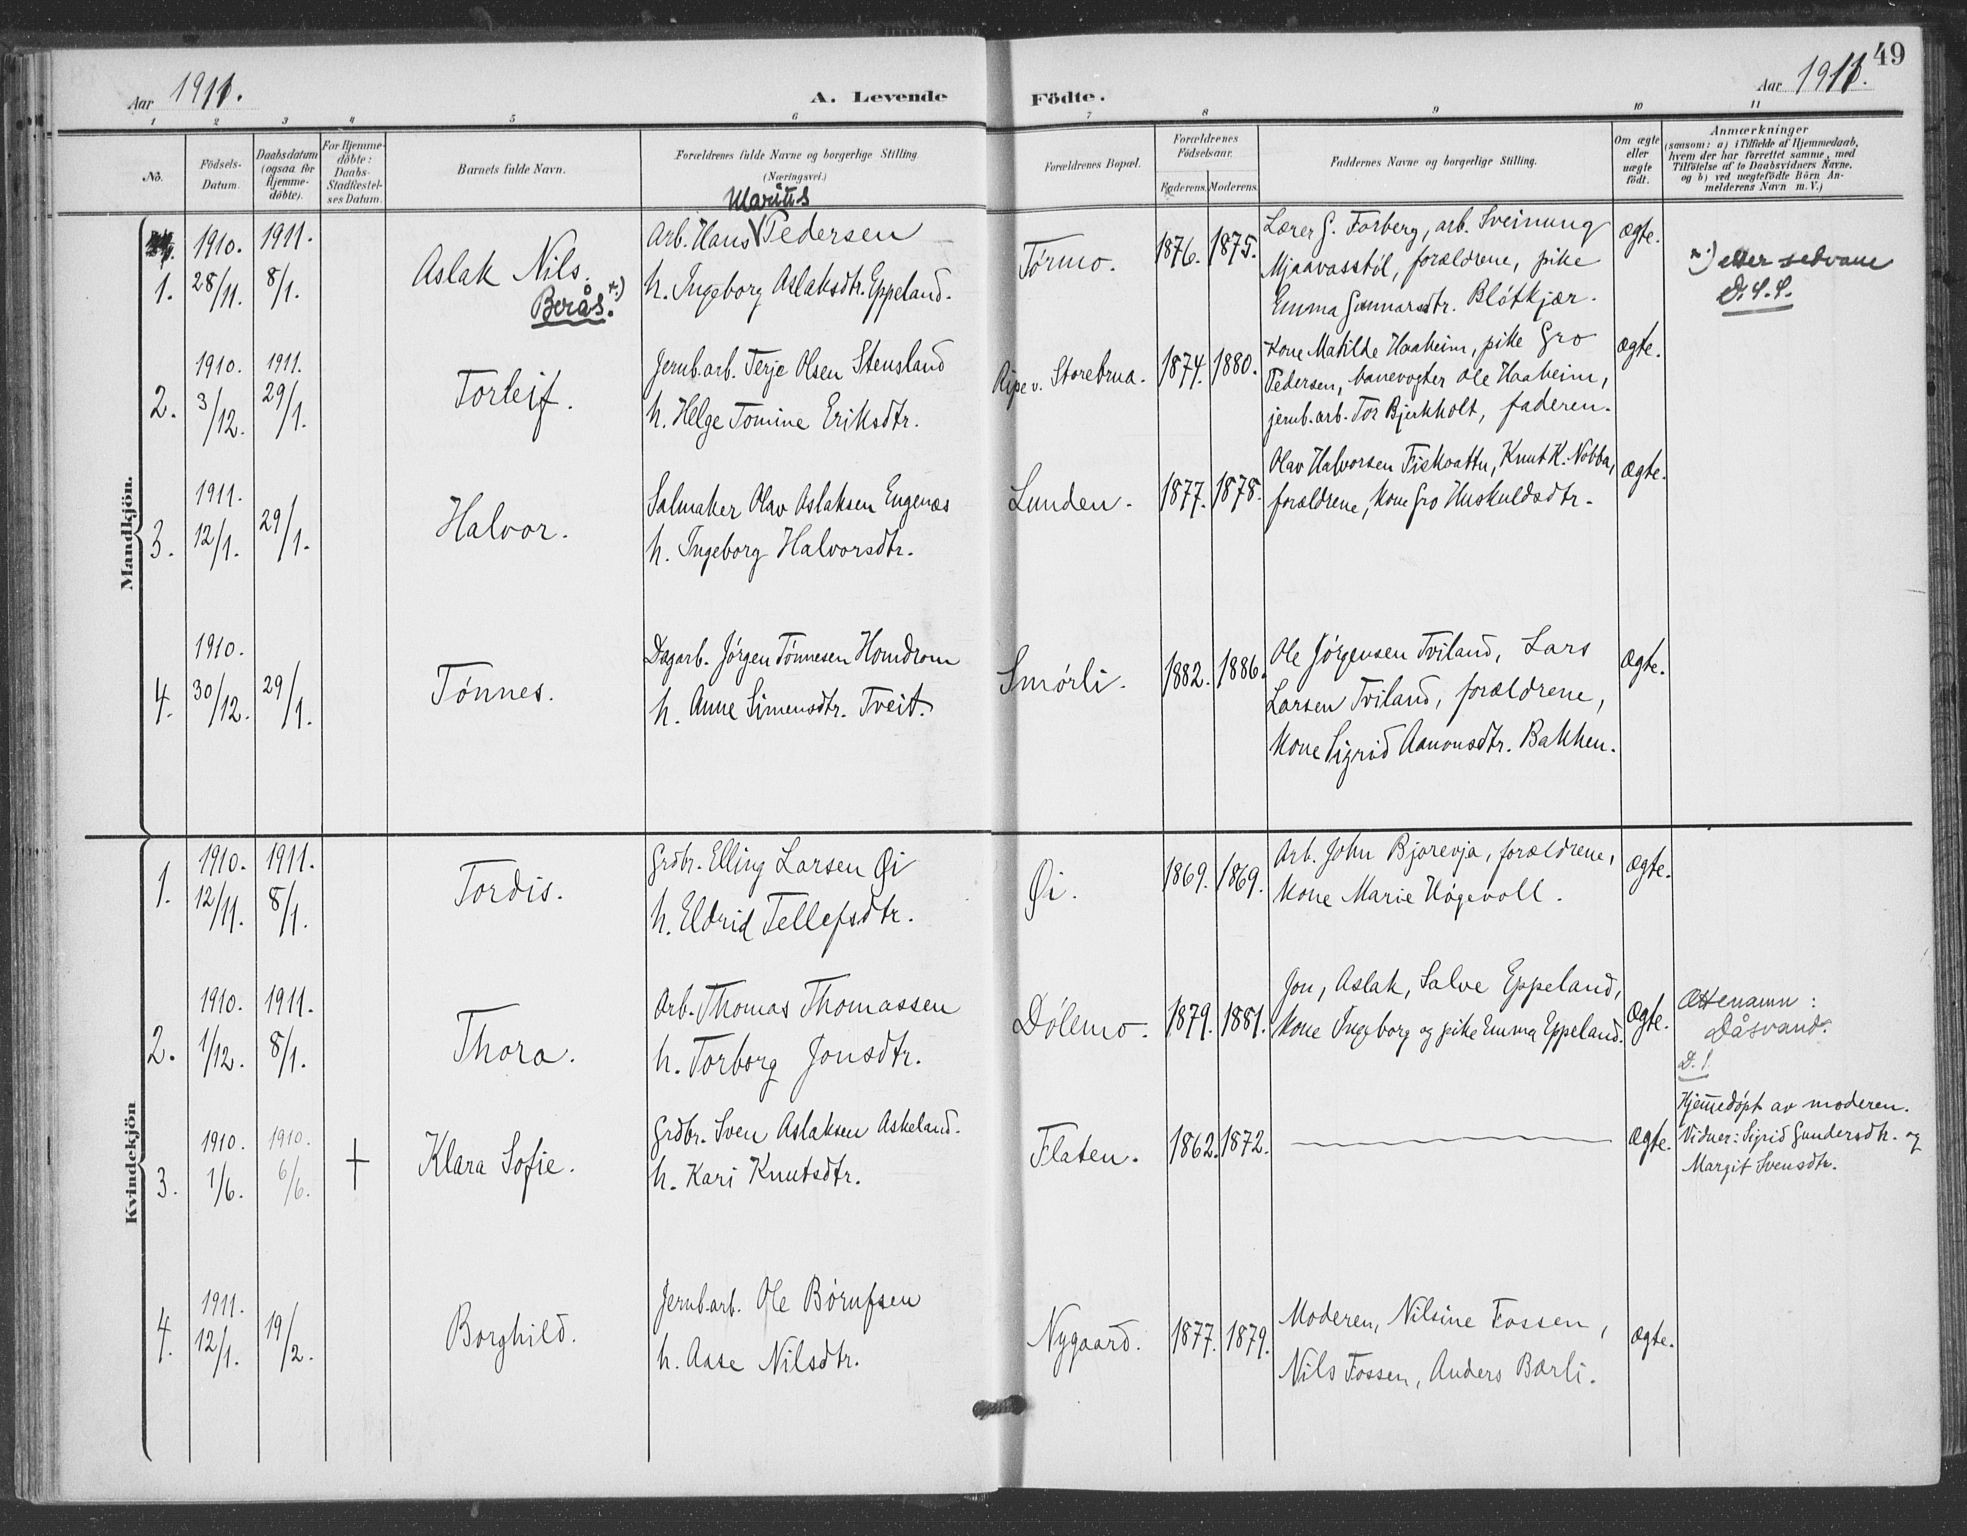 49
Aar 1911.
A. Levende Födte.
Aar 1911.
1 2 3 4 5 6 7 8 9 10 11
No.
Födsels-Datum.
Daabsdatum (ogsaa for Hjemme-döbte).
For Hjemme-döbte: Daabs-Stadfæstel-ses Datum.
Barnets fulde Navn.
Forældrenes fulde Navne og borgerlige Stilling.
(Næringsvei.)
Forældrenes Bopæl.
Forældrenes Födselsaar.
Faderens. Moderens.
Faddernes Navne og borgerlige Stilling.
Om ægte eller uægte födt.
Anmærkninger
(saasom: a) i Tilfælde af Hjemmedaab,
hvem der har forrettet samme, med
Tilföielse af to Daabsvidners Navne,
og b) ved uægtefödte Börn An-
melderens Navn m. V.)
Mandkjön.
1.
1910. 28/11.
1911. 8/1.
Aslak Nils.
Berås. *)
Marius
Arb. Hans Pedersen
h. Ingeborg Aslaksdtr. Eppeland.
Tørmo.
1876. 1875.
Lærer G. Forberg, arb. Sveinung
Mjaavasstøl, forældrene, pike
Emma Gunnarsdtr. Bløtkjær.
ægte.
*) etter sedvane
D. S. S.
2.
1910. 3/12.
1911. 29/1.
Torleif.
Jernb.arb. Terje Olsen Stensland
h. Helge Tomine Eriksdtr.
Ripe v. Storebrua.
1874. 1880.
Kone Matilde Haaheim, pike Gro
Pedersen, banevogter Ole Haaheim,
jernb.arb. Tor Bjerkholt, faderen.
ægte.
3.
1911. 12/1.
29/1.
Halvor.
Salmaker Olav Aslaksen Engenæs
h. Ingeborg Halvorsdtr.
Lunden.
1877. 1878.
Olav Halvorsen Fiskvattn, Knut K. Nobba,
forældrene, kone Gro Huskuldsdtr.
ægte.
4.
1910. 30/12.
29/1.
Tønnes.
Dagarb. Jørgen Tønnesen Homdrom
h. Anne Simensdtr. Tveit.
Smørli.
1882. 1886.
Ole Jørgensen Tviland, Lars
Larsen Tviland, forældrene,
kone Sigrid Aanonsdtr. Bakken.
ægte.
Kvindekjön
1.
1910. 12/11.
1911. 8/1.
Tordis.
Grdbr. Elling Larsen Øi
h. Eldrid Tellefsdtr.
Øi.
1869. 1869.
Arb. John Bjorevja, forældrene,
kone Marie Høgevoll.
ægte.
2.
1910. 1/12.
1911. 8/1.
Thora.
Arb. Thomas Thomassen
h. Torborg Jonsdtr.
Dølemo.
1879. 1881.
Jon, Aslak, Salve Eppeland,
kone Ingeborg og pike Emma Eppeland.
ægte.
Ættenamn:
Dåsvand.
D. S.
3.
1910. 1/6.
1910. 6/6.
Klara Sofie.
Grdbr. Sven Aslaksen Askeland.
h. Kari Knutsdtr.
Flaten.
1862. 1872.
ægte.
Hjemmedøpt av moderen.
Vidner: Sigrid Gundersdtr. og
Margit Svensdtr.
4.
1911. 12/1.
19/2.
Borghild.
Jernb.arb. Ole Børufsen
h. Aase Nilsdtr.
Nygaard.
1877. 1879.
Moderen, Nilsine Fossen,
Nils Fossen, Anders Barli.
ægte.